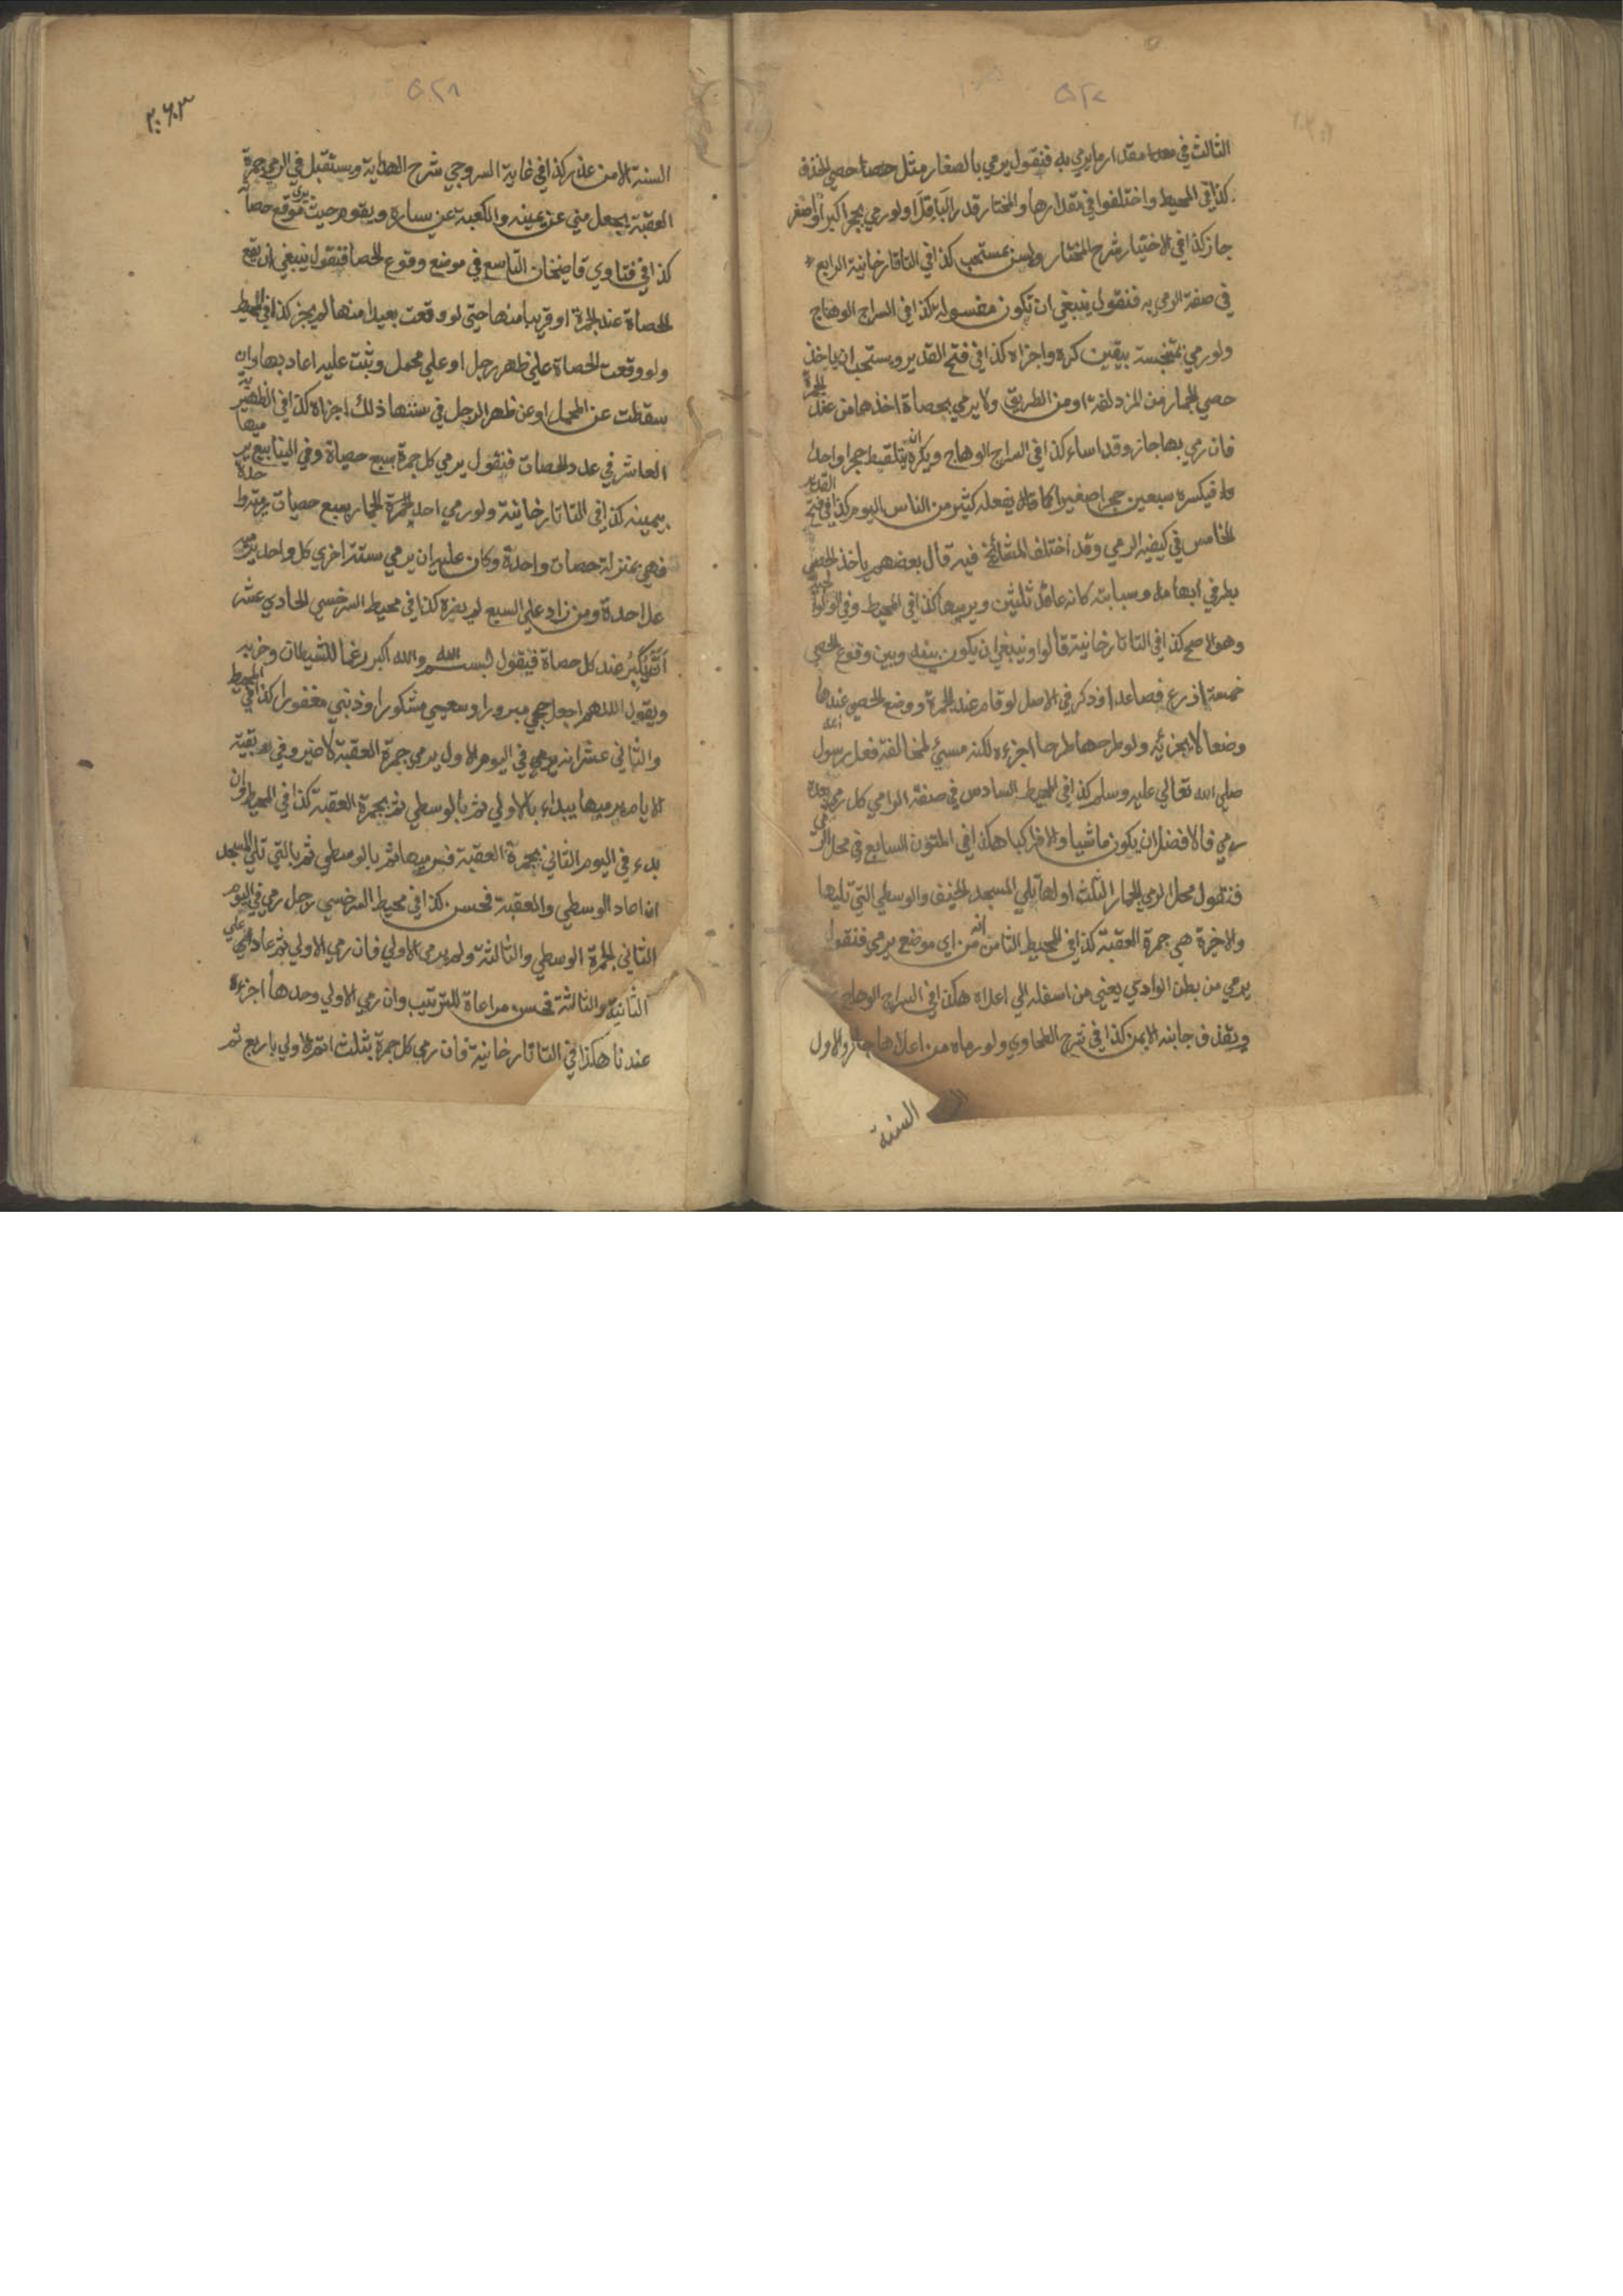 ۵۲۷
الثالث في مقدار ما يرمي به فنقول يرمي بالصغار مثل حصا حصي الخذف
كذا في المحيط واختلفوا في مقدارها والمختار قدر الباقلا ولو رمي بحجر اكبر او اصغر
جاز كذا في الاختيار شرح المختار وليس بمستحب كذا في التاتارخانية الرابع
في صفة الرمي به فنقول ينبغي ان تكون مغسولة كذا في السراج الوهاج
ولو رمي بمتنجسة بيقين كره واجزاه كذا في فتح القدير ويستحب ان ياخذ
حصي الجمار من المزدلفة او من الطريق ولا يرمي بحصاة اخذها من عند الجمرة
فان رمي بها جاز وقد اساء كذا في السراج الوهاج ويكره ان يلتقط حجرا واحدا
فيكسره سبعين حجرا صغيرا كما يفعله كثير من الناس اليوم كذا في فتح القدير
الخامس في كيفية الرمي وقد اختلف المشائخ فيه قال بعضهم ياخذ الحصي
بطرفي ابهامه وسبابته كانه عاقد ثلثين ويرميها كذا في المحيط وفي الولوالجية
وهو الاصح كذا في التاتارخانية قالوا وينبغي ان يكون بينه وبين وقوع الحصي
خمسة اذرع فصاعدا وذكر في الاصل لو قام عند الجمرة ووضع الحصي عندها
وضعا لا يجزئه ولو طرحها طرحا اجزءه لكنه مسئ لمخالفة فعل رسول الله
صلي الله تعالي عليه وسلم كذا في المحيط السادس في صفة الرامي كل رمي بعده
رمي فالافضل ان يكون ماشيا والا فراكبا هكذا في المتون السابع في محل الرمي
فنقول محل الرمي الجمار الثلث اولها تلي المسجد الخيف والوسطي التي تليها
والاخرة هي جمرة العقبة كذا في المحيط الثامن انه من اي موضع يرمي فنقول
يرمي من بطن الوادي يعني من اسفله الي اعلاه هكذا في السراج الوهاج
ويقذف جانبه الايمن كذا في شرح الطحاوي ولو رماه من اعلاها جاز والاول
السنة
۵۲۸
السنة الا من عذر كذا في غاية السروجي شرح الهداية ويستقبل في الرمي جمرة
العقبة يجعل مني عن يمينه والكعبة عن يساره ويقوم حيث يرى موقع حصاه
كذا في فتاوي قاضيخان التاسع في موضع وقوع الحصا فنقول ينبغي ان يقع
الحصاة عند الجمرة او قريبا منها حتي لو وقعت بعيدا منها لم يجز كذا في المحيط
ولو وقعت الحصاة علي ظهر رجل او علي محمل وثبت عليه اعادها وان
سقطت عن المحمل او عن ظهر الرجل في سننها ذلك اجزاه كذا في الظهيرية
العاشر في عدد الحصات فنقول يرمي كل جمرة بسبع حصاة وفي الينابيع يرميها
بيمينه كذا في التاتارخانية ولو رمي احد الجمرة الجمار بسبع حصيات
فهي بمنزلة حصات واحدة وكان عليه ان يرمي ستة اخري كل واحد
علا حدة ومن زاد علي السبع لم يضره كذا في محيط السرخسي الحادي عشر
انه يكبر عند كل حصاة فيقول بسم الله والله اكبر رغما للشيطان وحزبه
ويقول اللهم اجعل حجي مبرورا وسعيي مشكورا وذنبي مغفورا كذا في المحيط
والثاني عشر انه يرمي في اليوم الاول يرمي جمرة العقبة لا غير وفي بقية
الايام يرميها يبداء بالاولي ثم بالوسطي ثم بجمرة العقبة كذا في المحيط وان
بدء في اليوم الثاني بجمرة العقبة فرميها ثم بالوسطي ثم بالتي تلي المسجد
ان اعاد الوسطي والعقبة فحسن كذا في محيط السرخسي رجل رمي في اليوم
الثاني الجمرة الوسطي والثالثة ولم يرمي الاولي فان رمي الاولي ثم عاد علي
الثانية والثالثة فحسن مراعاة للترتيب وان رمي الاولي وحدها اجزءه
عندنا هكذا في التاتارخانية فان رمي كل جمرة بثلث اتم الاولي باربع ثم